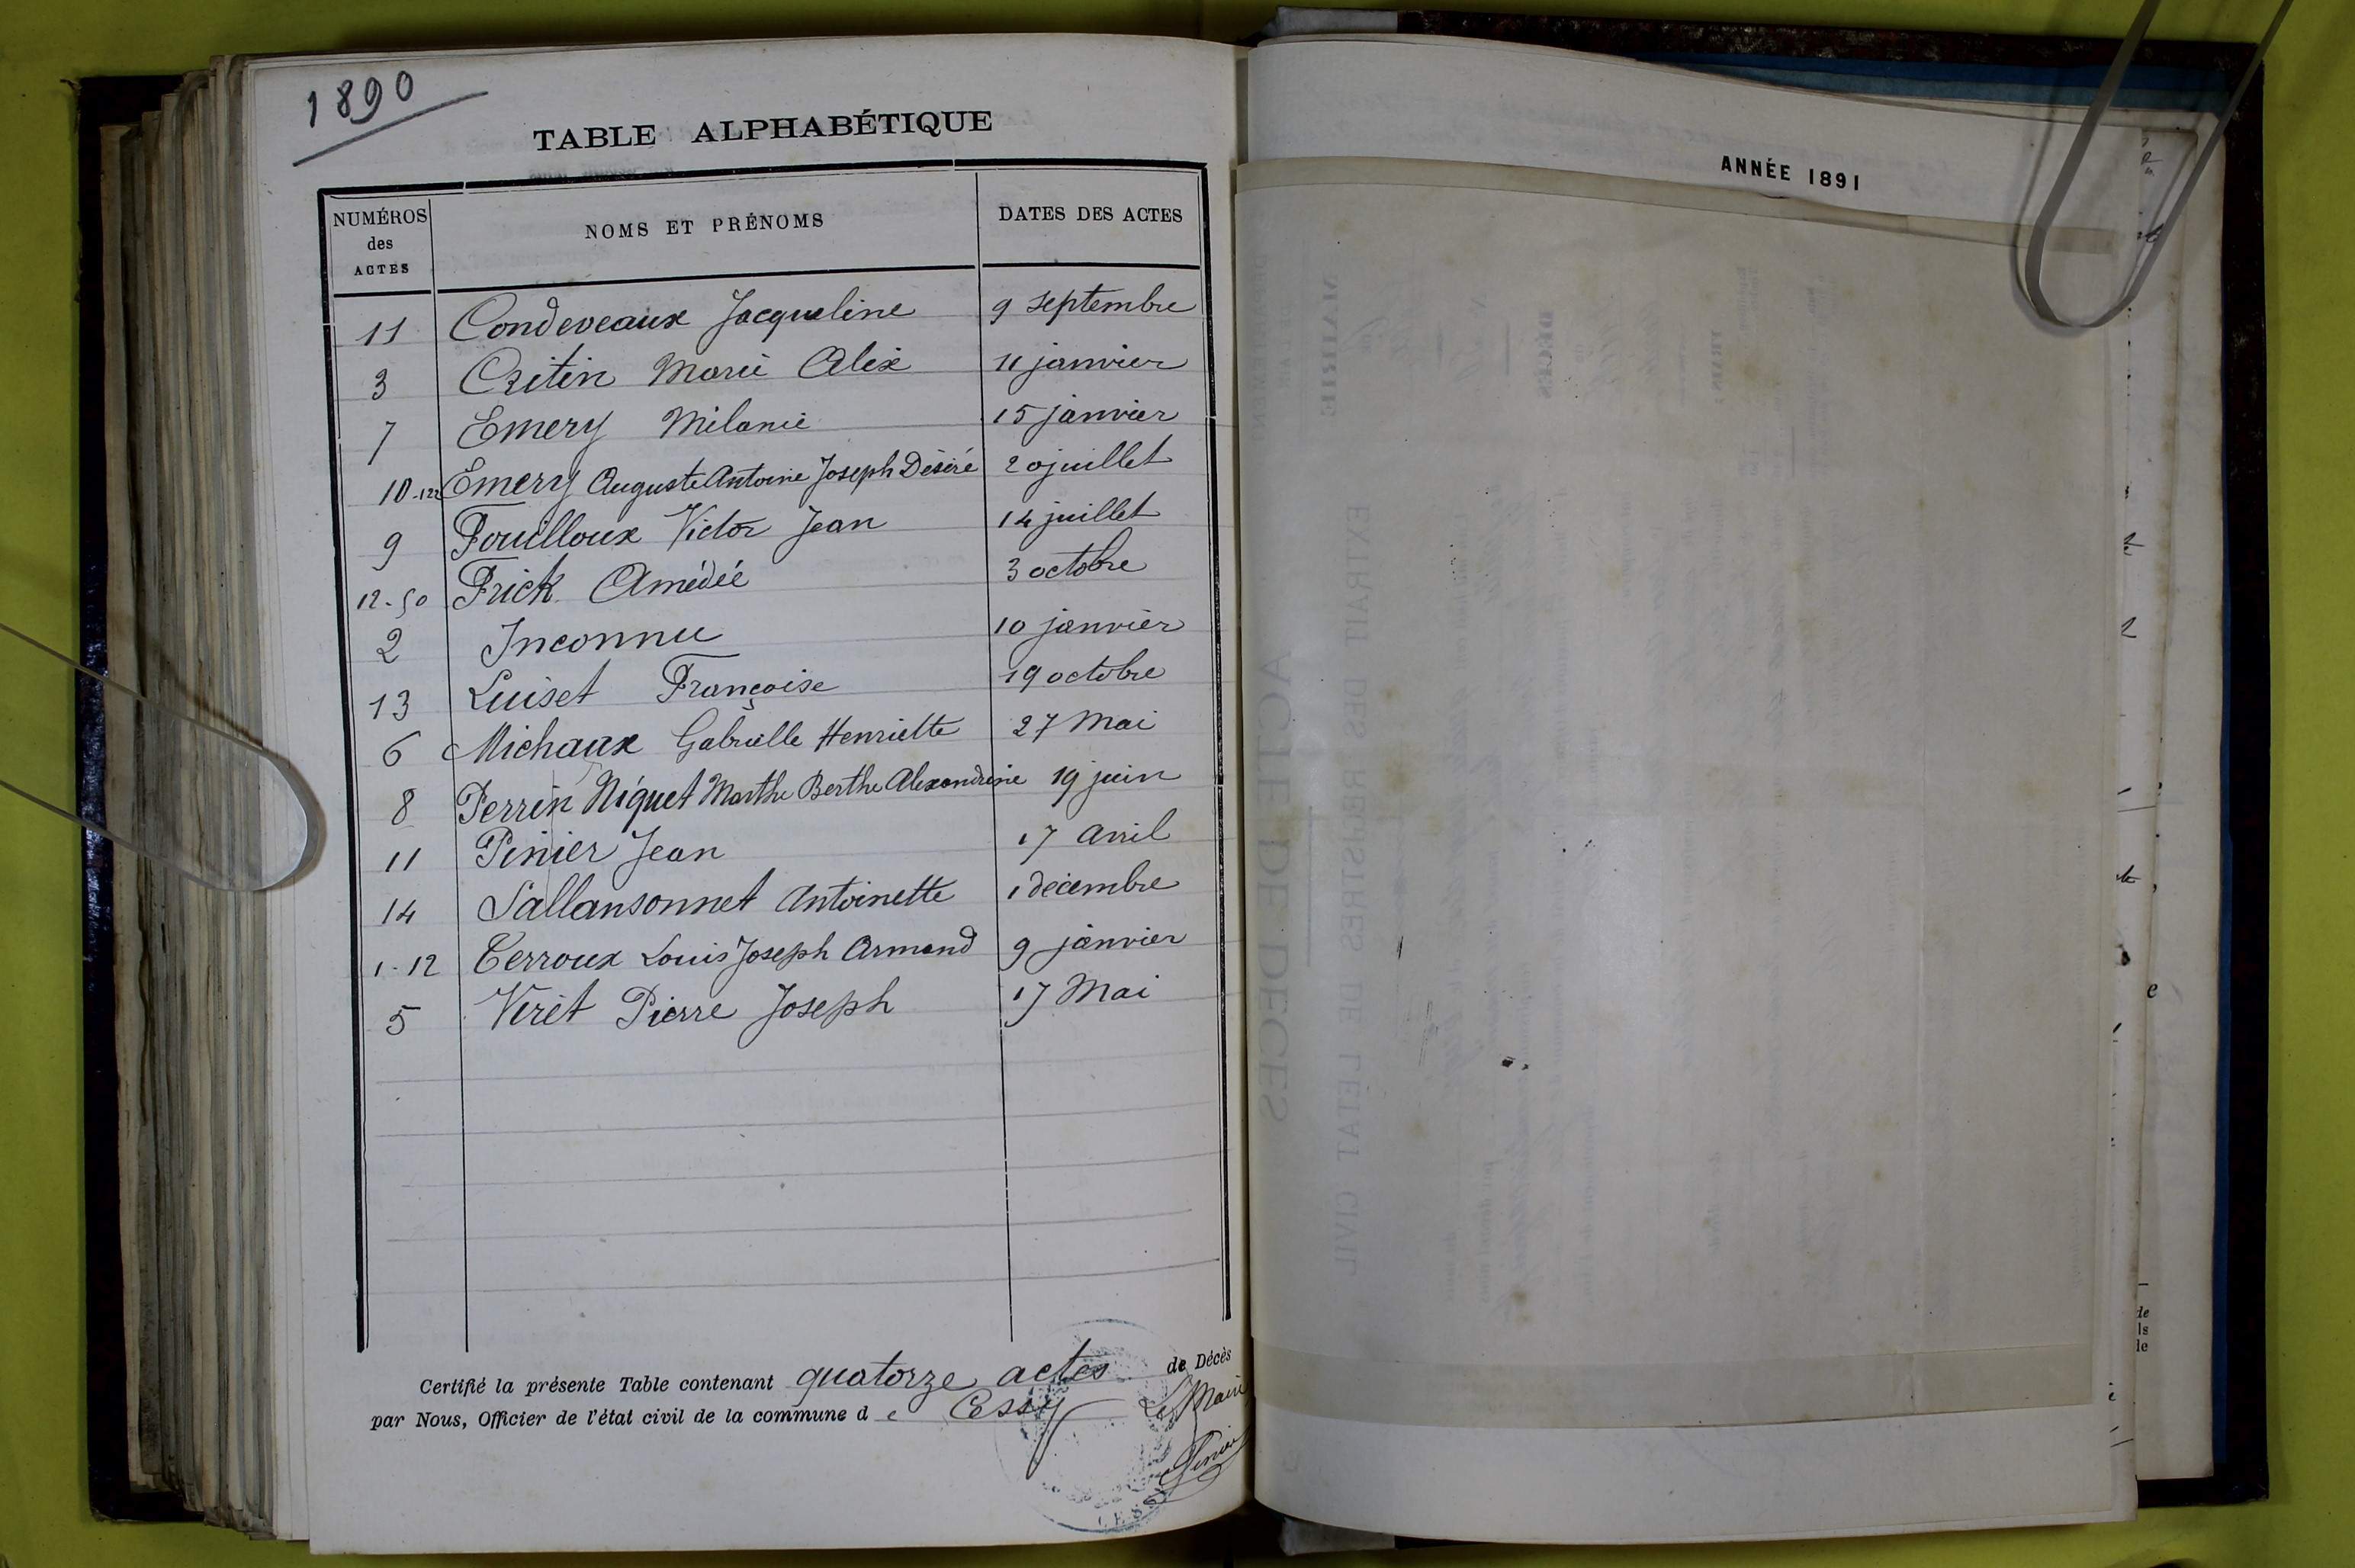 1890
TABLE ALPHABÉTIQUE
NUMÉROS des ACTES NOMS ET PRÉNOMS DATES DES ACTES
11 Condeveaux Jacqueline 9 septembre
3 Critin Marie Alix 11 janvier
7 Emery Mélanie 15 janvier
10-122 Emery Auguste Antoine Joseph Désiré 20 juillet
9 Fouilloux Victor Jean 14 juillet
12-50 Frick Amédée 3 octobre
2 Inconnu 10 janvier
13 Luiset Françoise 19 octobre
6 Michaux Gabrielle Henriette 27 Mai
8 Perrin Niquet Marthe Berthe Alexandrine 19 juin
11 Pinier Jean 17 Avril
14 Sallansonnet Antoinette 1 décembre
1-12 Terroux Louis Joseph Armand 9 janvier
5 Verêt Pierre Joseph 17 Mai
Certifié la présente Table contenant quatorze actes de Décès
par Nous, Officier de l'état civil de la commune de Cessy Le Maire
ANNÉE 1891
MAIRIE
DÉCÈS
EXTRAIT DES REGISTRES DE L'ÉTAT CIVIL
ACTE DE DÉCÈS